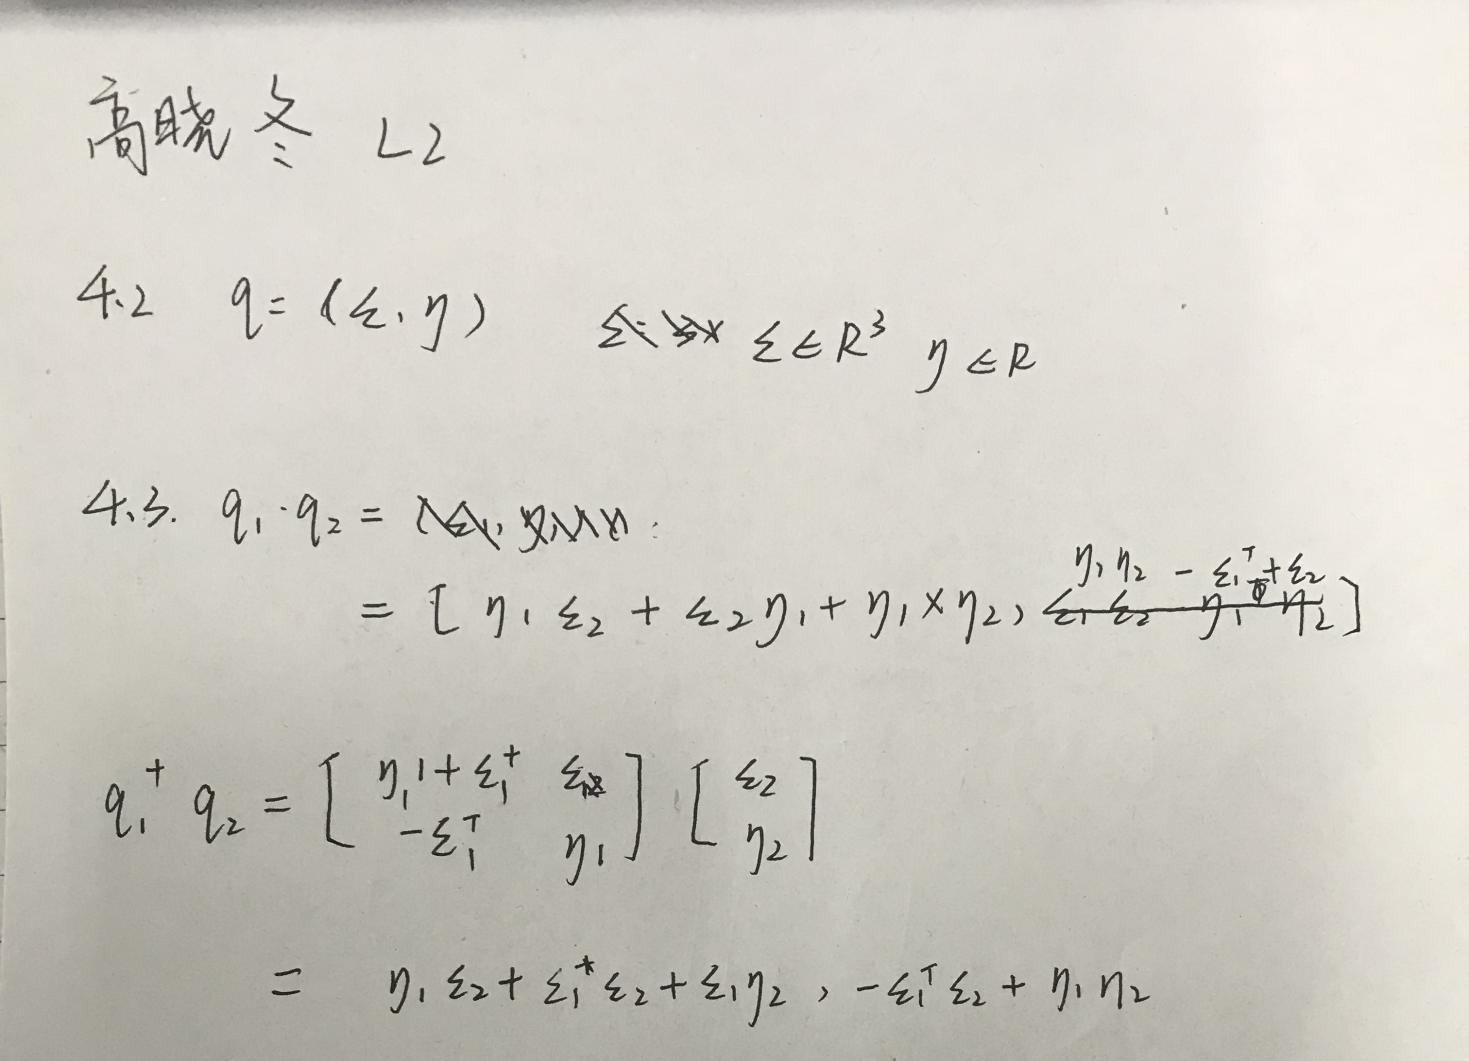 高晓冬 L2
4.2 q = (ε, η) ε ∈ R³ η ∈ R
4.3. q₁ · q₂ =
= [ η₁ ε₂ + ε₂ η₁ + η₁ × η₂, η₁ η₂ - ε₁ᵀ + ε₂ ]
q₁⁺ q₂ = [ η₁ 1 + ε₁⁺ ε₁ ] [ ε₂ ]
-ε₁ᵀ η₁ η₂
= η₁ ε₂ + ε₁* ε₂ + ε₁ η₂, -ε₁ᵀ ε₂ + η₁ η₂